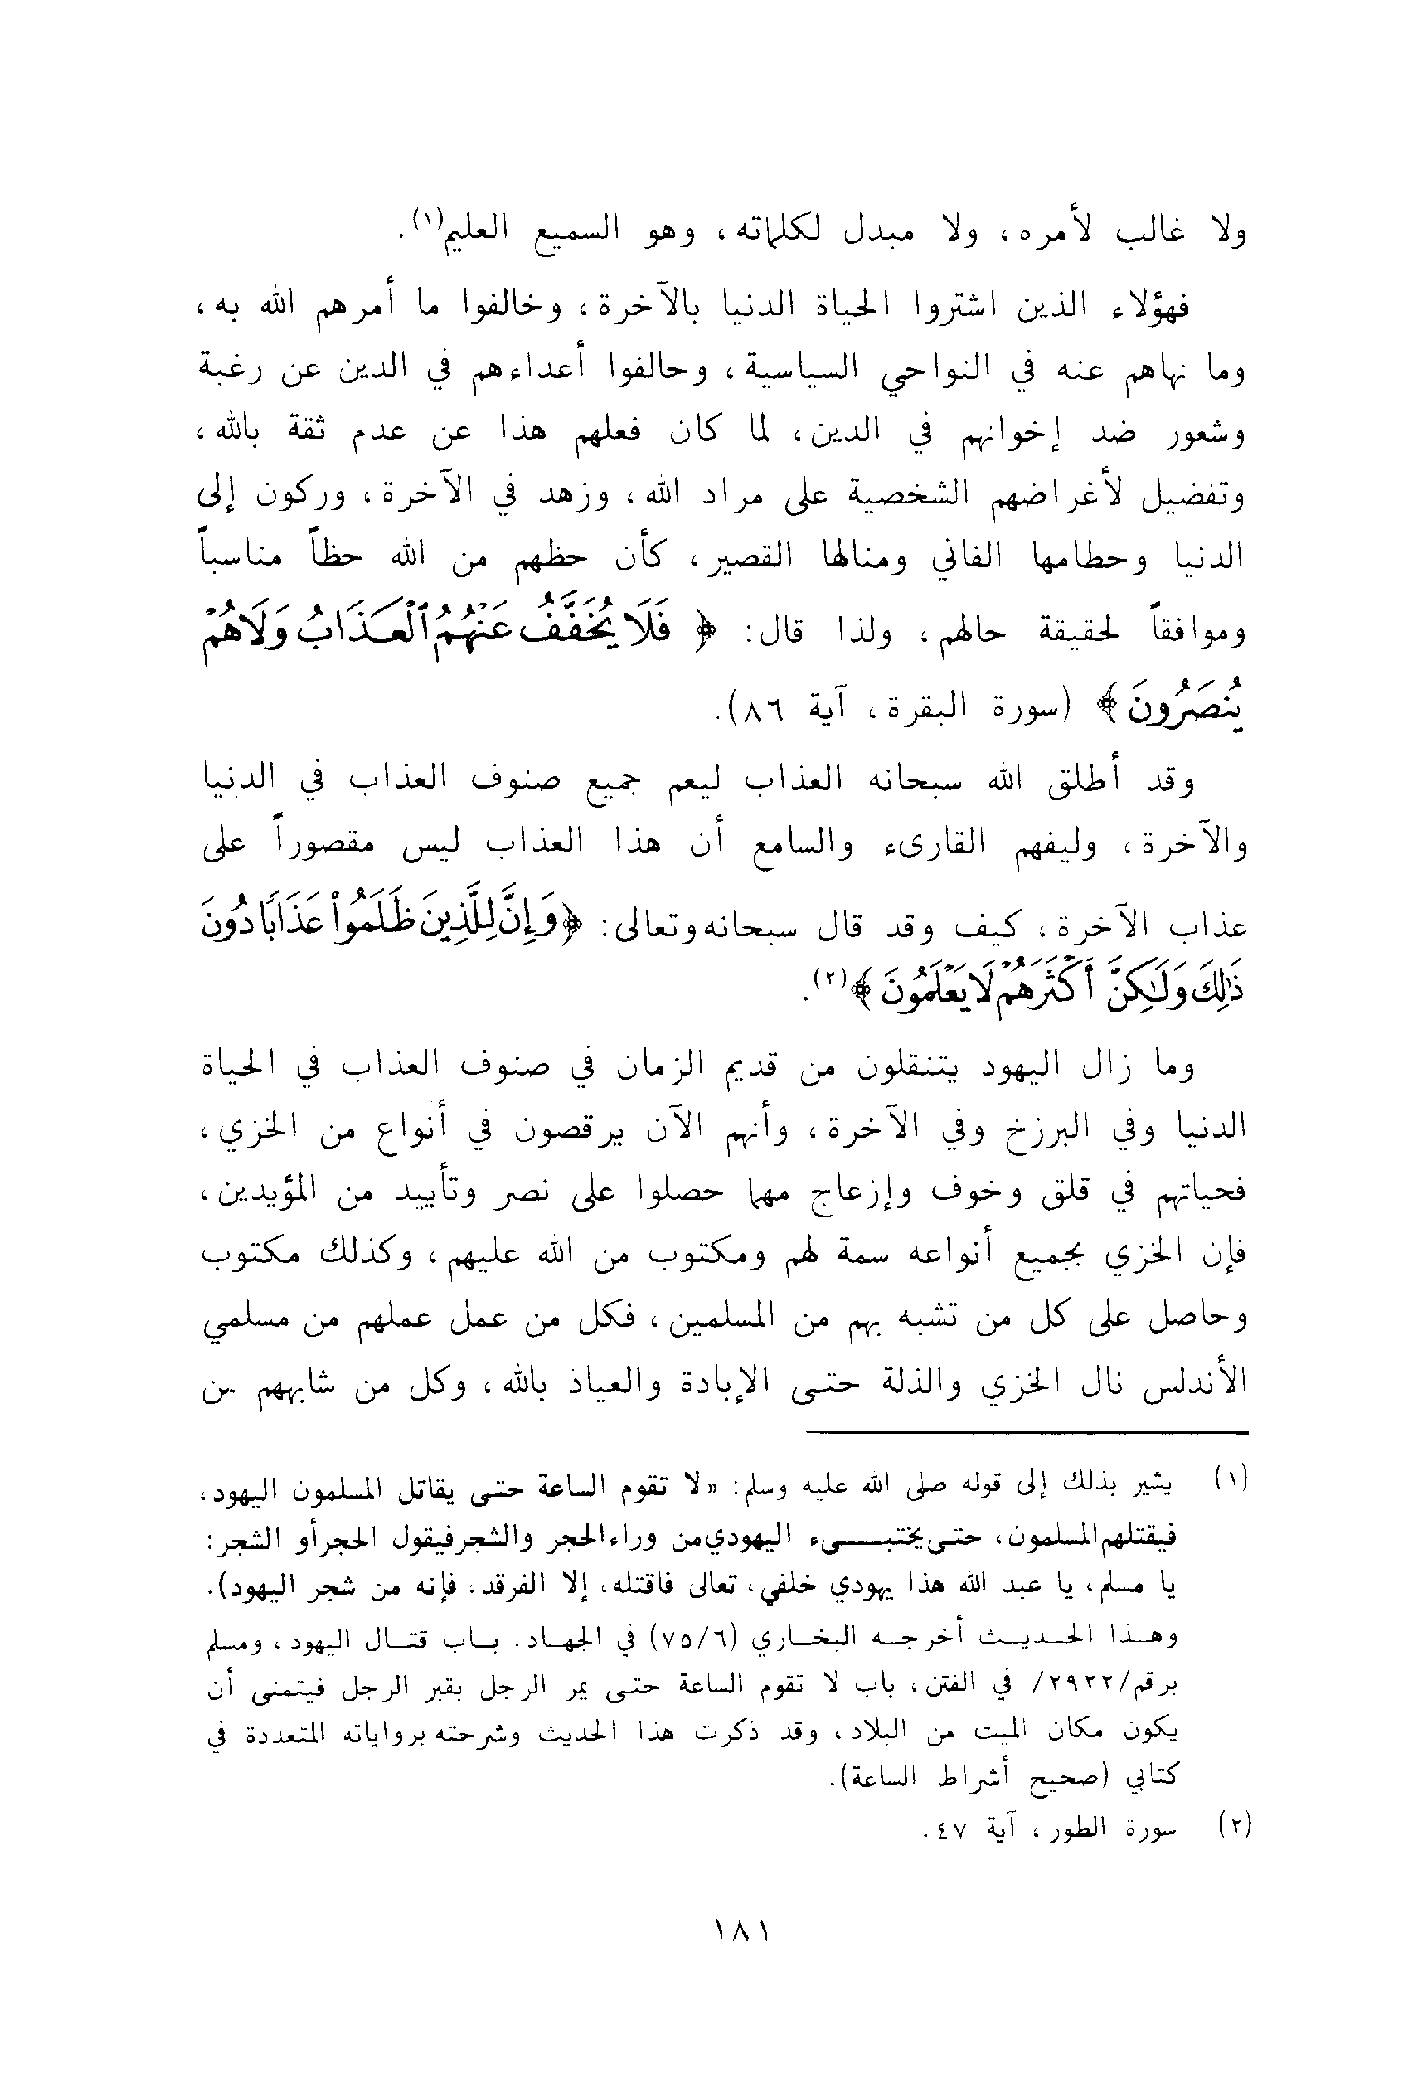 ولا غالب لأمره، ولا مبدل لكلماته، وهو السميع العليم(١).
فهؤلاء الذين اشتروا الحياة الدنيا بالآخرة، وخالفوا ما أمرهم الله به،
وما نهاهم عنه في النواحي السياسية، وحالفوا أعداءهم في الدين عن رغبة
وشعور ضد إخوانهم في الدين، لما كان فعلهم هذا عن عدم ثقة بالله،
وتفضيل لأغراضهم الشخصية على مراد الله، وزهد في الآخرة، وركون إلى
الدنيا وحطامها الفاني ومنالها القصير، كأن حظهم من الله حظاً مناسباً
وموافقاً لحقيقة حالهم، ولذا قال: ﴿ فَلَا يُخَفَّفُ عَنْهُمُ ٱلْعَذَابُ وَلَا هُمْ
يُنصَرُونَ ﴾ (سورة البقرة، آية ٨٦).
وقد أطلق الله سبحانه العذاب ليعم جميع صنوف العذاب في الدنيا
والآخرة، وليفهم القارىء والسامع أن هذا العذاب ليس مقصوراً على
عذاب الآخرة، كيف وقد قال سبحانه وتعالى: ﴿ وَإِنَّ لِلَّذِينَ ظَلَمُوا۟ عَذَابًا دُونَ
ذَٰلِكَ وَلَٰكِنَّ أَكْثَرَهُمْ لَا يَعْلَمُونَ ﴾(٢).
وما زال اليهود يتنقلون من قديم الزمان في صنوف العذاب في الحياة
الدنيا وفي البرزخ وفي الآخرة، وأنهم الآن يرقصون في أنواع من الخزي،
فحياتهم في قلق وخوف وإزعاج مهما حصلوا على نصر وتأييد من المؤيدين،
فإن الخزي بجميع أنواعه سمة لهم ومكتوب من الله عليهم، وكذلك مكتوب
وحاصل على كل من تشبه بهم من المسلمين، فكل من عمل عملهم من مسلمي
الأندلس نال الخزي والذلة حتى الإبادة والعياذ بالله، وكل من شابههم من
(١) يشير بذلك إلى قوله صلى الله عليه وسلم: «لا تقوم الساعة حتى يقاتل المسلمون اليهود،
فيقتلهم المسلمون، حتى يختبىء اليهودي من وراء الحجر والشجر فيقول الحجر أو الشجر:
يا مسلم، يا عبد الله هذا يهودي خلفي، تعالى فاقتله، إلا الفرقد، فإنه من شجر اليهود).
وهذا الحديث أخرجه البخاري (٧٥/٦) في الجهاد. باب قتال اليهود، ومسلم
برقم/٢٩٢٢/ في الفتن، باب لا تقوم الساعة حتى يمر الرجل بقبر الرجل فيتمنى أن
يكون مكان الميت من البلاد، وقد ذكرت هذا الحديث وشرحته برواياته المتعددة في
كتابي (صحيح أشراط الساعة).
(٢) سورة الطور، آية ٤٧.
١٨١